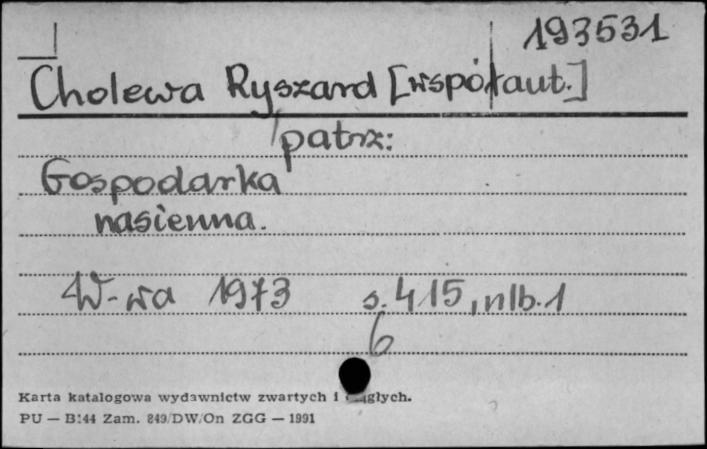 193531
Cholewa Ryszard [współaut.]
patrz:
Gospodarka
nasienna.
W-wa 1973 s. 415, nlb. 1
6
Karta katalogowa wydawnictw zwartych i ciągłych.
PU — B:44 Zam. 849/DW/On ZGG — 1991